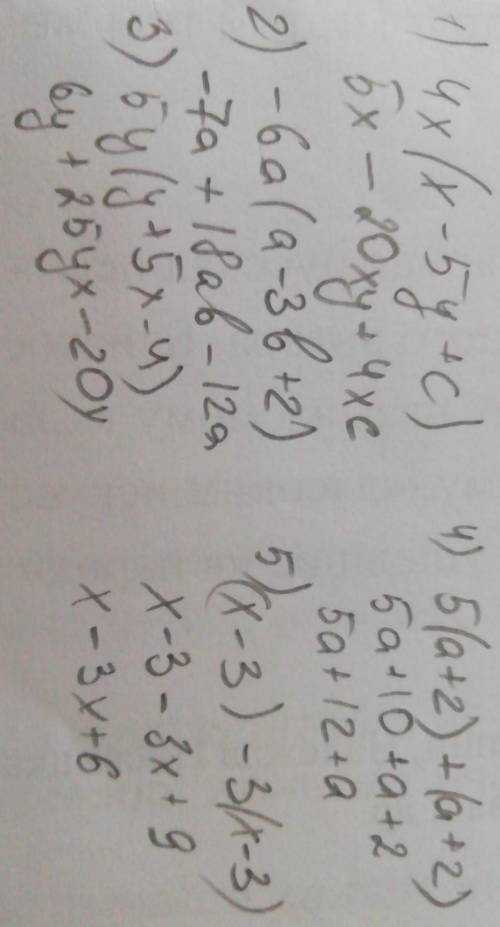 1) 4x(x-5y+c)
5x-20xy+4xc
2) -6a(a-3b+2)
-7a+18ab-12a
3) 5y(y+5x-4)
6y+25yx-20y
4) 5(a+2)+(a+2)
5a+10+a+2
5a+12+a
5)(x-3)-3(x-3)
x-3-3x+9
x-3x+6